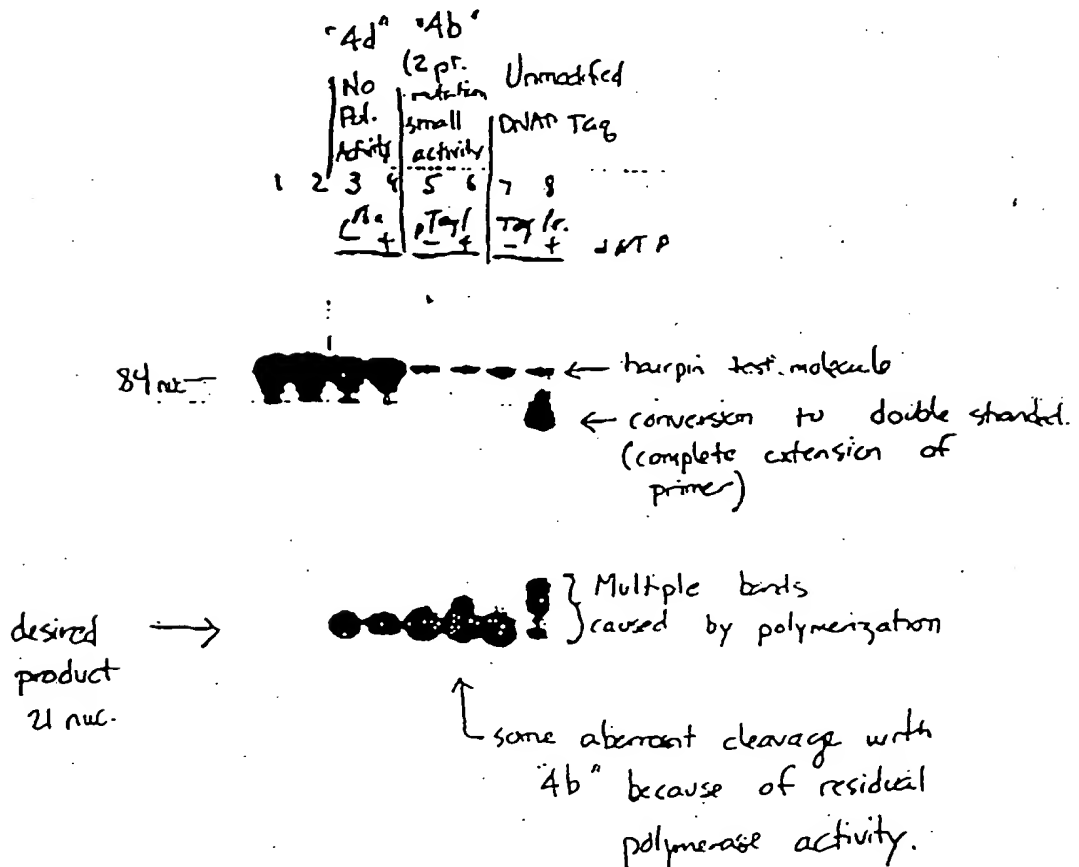 "4d" "4b"
No
Pol.
Activity
(2 pr.
mutation
small
activity
Unmodified
DNAP Taq
1 2 3 4 5 6 7 8
- + - + - + dNTP
84 nuc
← hairpin test molecule
← conversion to double stranded.
(complete extension of
primer)
desired →
product
21 nuc.
Multiple bands
caused by polymerization
some aberrant cleavage with
"4b" because of residual
polymerase activity.